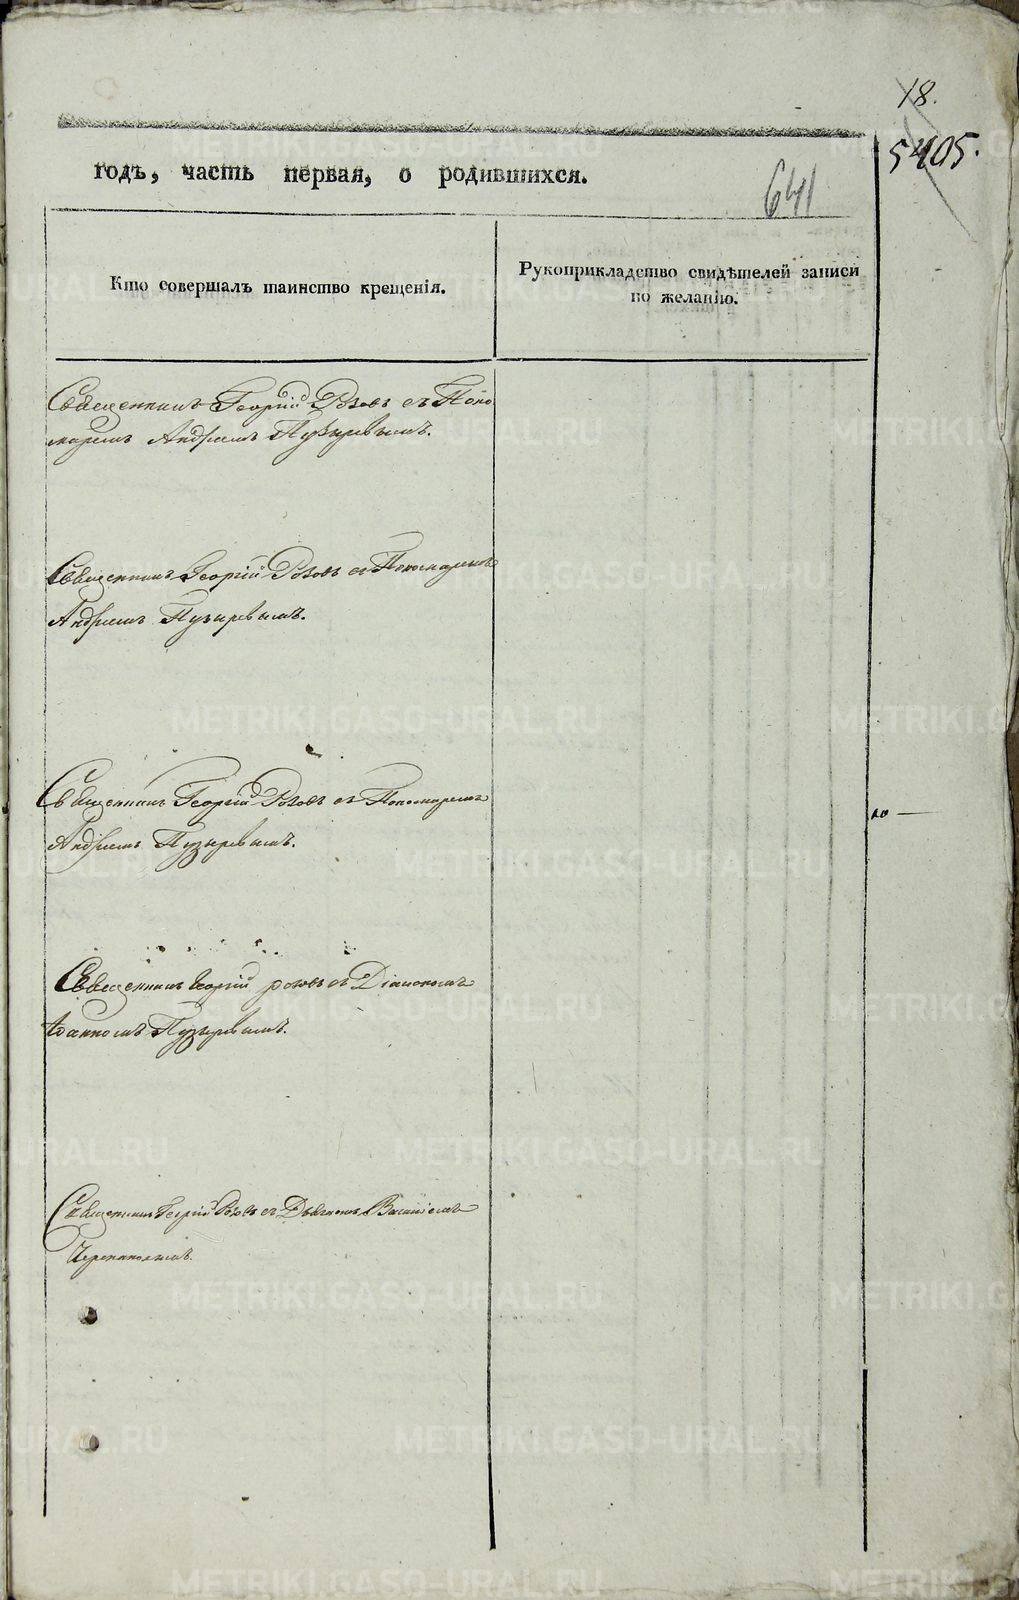 18.
5405.
годъ, часть первая, о родившихся.
641
Кто совершалъ таинство крещенія.
Рукоприкладство свидѣтелей записи
по желанію.
Священникъ Георгій Розовъ съ Поно
маремъ Андреемъ Пузыревымъ.
Священникъ Георгій Розовъ съ Пономаремъ
Андреемъ Пузыревымъ.
Священникъ Георгій Розовъ съ Пономаремъ
Андреемъ Пузыревымъ.
Священникъ Георгій розовъ съ Діакономъ
Іоанномъ Пузыревымъ.
Священникъ Георгій Розовъ съ Дьячкомъ
METRIKI.GASO-URAL.RU